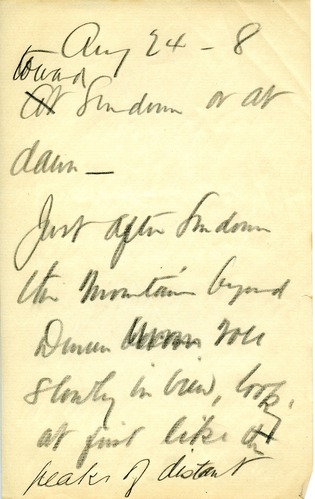 Aug 24 - 8
toward
At Sundown or at
dawn —
Just after Sundown
the Mountains beyond
Denver rose
slowly in view, looking
at first like the
peaks of distant